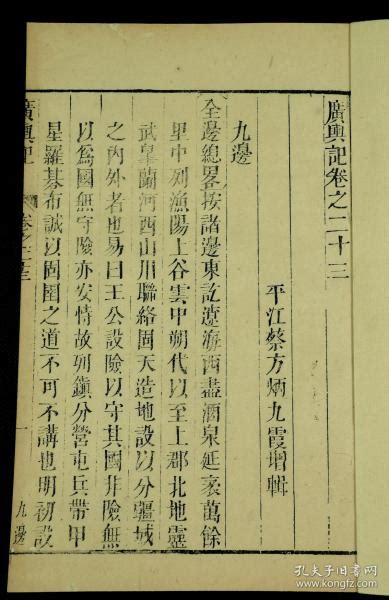 廣輿記卷之二十三
平江蔡方炳九霞增輯
九邊
全邊總畧按諸邊東訖遼海西盡酒泉延袤萬餘
里中列漁陽上谷雲中朔代以至上郡北地靈
武皐蘭河西山川聯絡固天造地設以分疆域
之內外者也易曰王公設險以守其國非險無
以爲國無守險亦安恃故列鎭分營屯兵帶甲
星羅棊布誠以固圉之道不可不講也明初設
廣輿記
卷之二十三
一
九邊
孔夫子旧书网